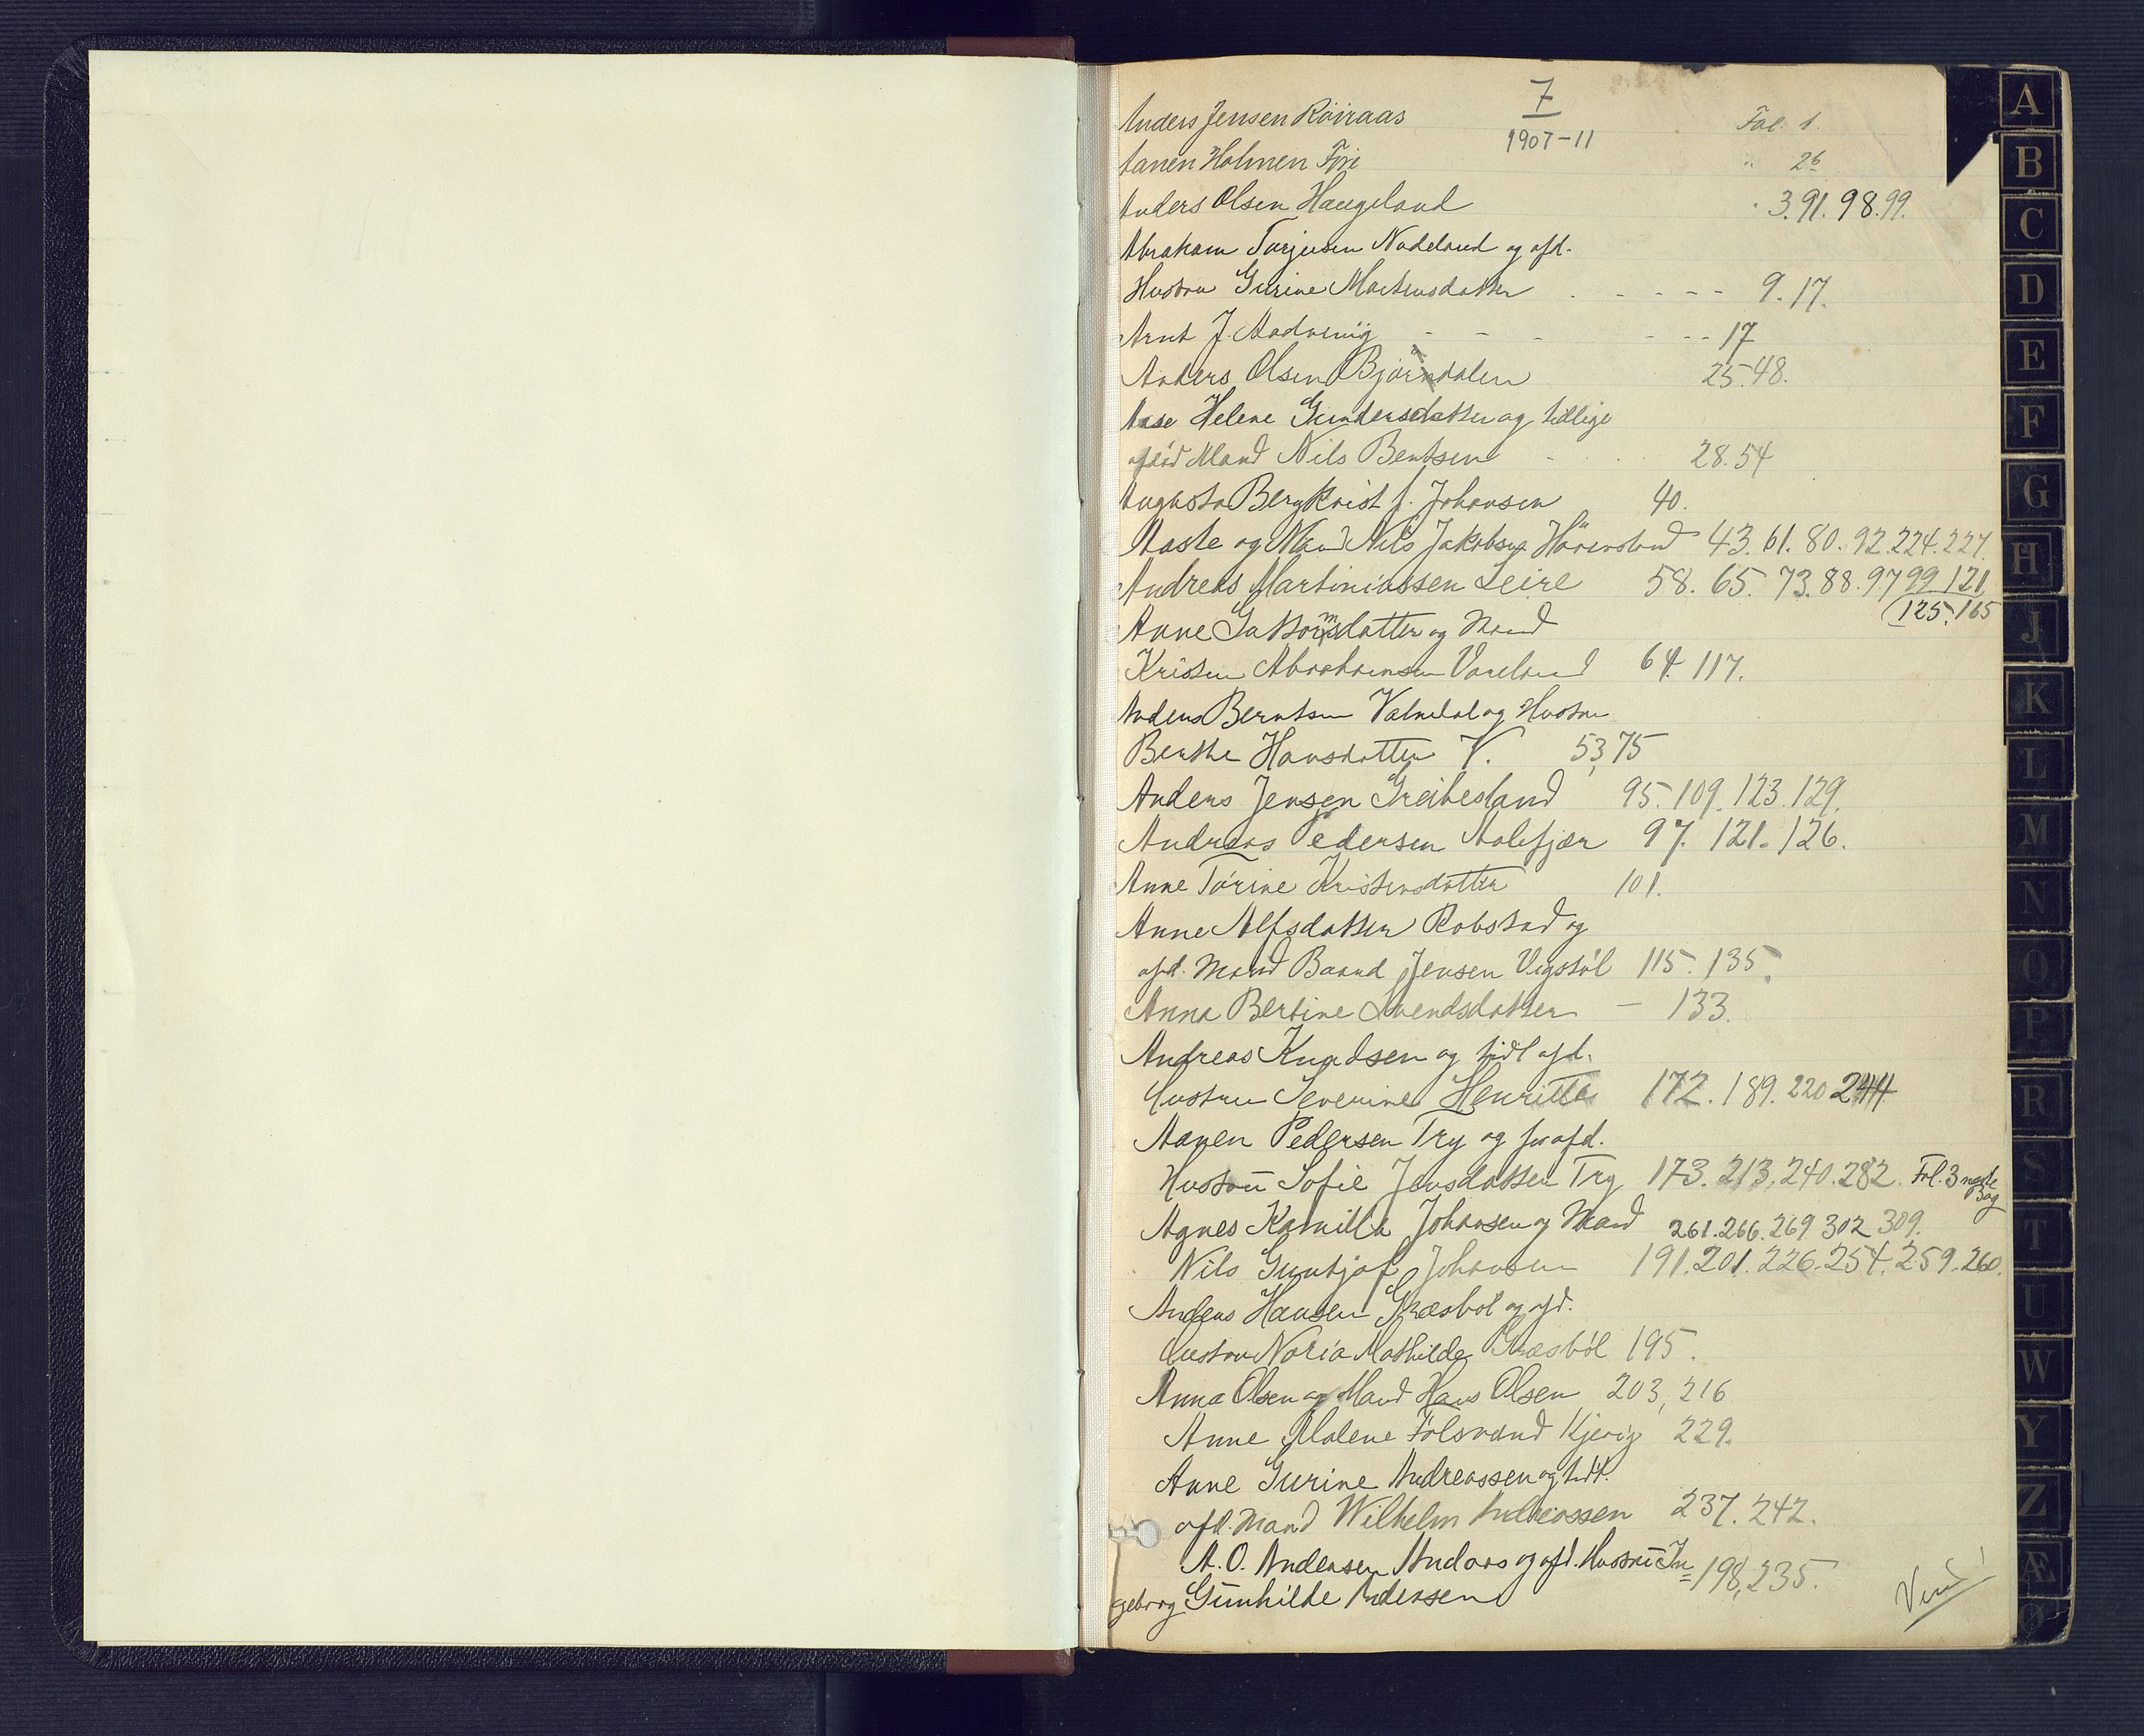 7
1907-11
Anders Jensen Röiraas Fol. 1.
Aanen Holmen Fjre " 26
Anders Olsen Haugeland " 3. 91. 98. 99.
Abraham Torjusen Nodeland og afd.
Hustru Gurine Martinsdatter - - - - - 9. 17.
Arnt J. Aadnevig - - - - - - 17
Anders Olsen Bjorndalen 25. 48.
Aase Helene Gundersdatter og tidlige
afdød Mand Nils Bentsen - 28. 54
Augusta Bergkvist f. Johansen 40.
Aaste og Mand Nils Jakobsen 43. 61. 80. 92. 224. 227.
Andreas Martiniussen Leire 58. 65. 73. 88. 97 99. 121
125. 165
Anne Guttormsdatter og Mand
Kristen Abrahamsen Vareland 64. 117.
Anders Berntsen og Hustru
Berthe Hansdatter V. 53, 75
Anders Jensen Greibesland 95. 109. 123. 129.
Andreas Pedersen Aalefjær 97. 121. 126.
Anne Tørine Kristensdatter 101.
Anne Alfsdatter Robstad og
afd. Mand Baard Jensen Vigstöl 115. 135.
Anna Bertine Svendsdatter - 133.
Andreas Knudsen og tidl afd.
Hustru Severine Henritte 172. 189. 220 244
Aanen Pedersen Try og før afd.
Hustru Sofie Jensdatter Try 173. 213. 240. 282. Fol. 3 neste
Bog
Agnes Kamilla Johansen og Mand 261. 266. 269. 302 309.
Nils Guntjof Johansen 191. 201. 226. 254. 259. 260.
Anders Hansen Græsböl og afd.
Hustru Maria Mathilde Græsböl 195.
Anna Olsen og Mand Hans Olsen 203, 216
Anne Malene Fölsvand Kjevig 229.
Anne Gurine Andreassen og tidl.
afd. Mand Wilhelm Andreassen 237. 242.
A. O. Andersen Andaas og afd. Hustru In=
geborg Gunhilde Andersen 198, 235.
Vend!
A
B
C
D
E
F
G
H
J
K
L
M
N
O
P
R
S
T
U
W
Y
Z
Æ
Ø